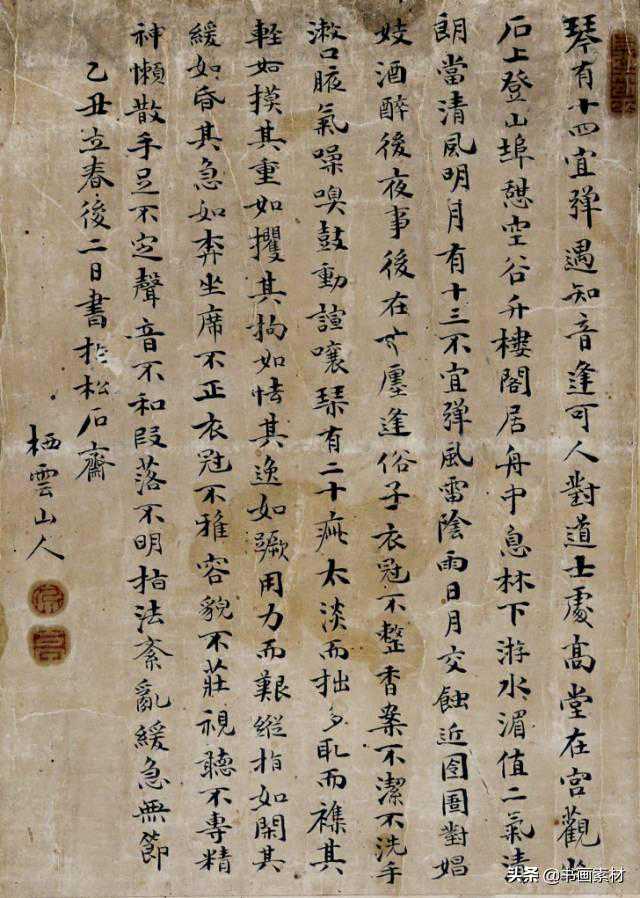 琴有十四宜弹遇知音逢可人對道士處髙堂在宮觀坐
石上登山埠憩空谷升樓閣居舟中息林下游水湄值二氣清
朗當清風明月有十三不宜弹風雷陰雨日月交蝕近囹圄對娼
妓酒醉後夜事後在廛逢俗子衣冠不整香案不潔不洗手
漱口腋氣噪嗅鼓動諠嚷琴有二十疵太淡而拙多取而襍其
輕如摸其重如攫其拘如怯其逸如蹶用力而艱縱指如閑其
緩如昏其急如奔坐席不正衣冠不雅容貌不莊視聽不專精
神懶散手足不定聲音不和段落不明指法紊亂緩急無節
乙丑立春後二日書於松石齋
栖雲山人
头条 @书画素材